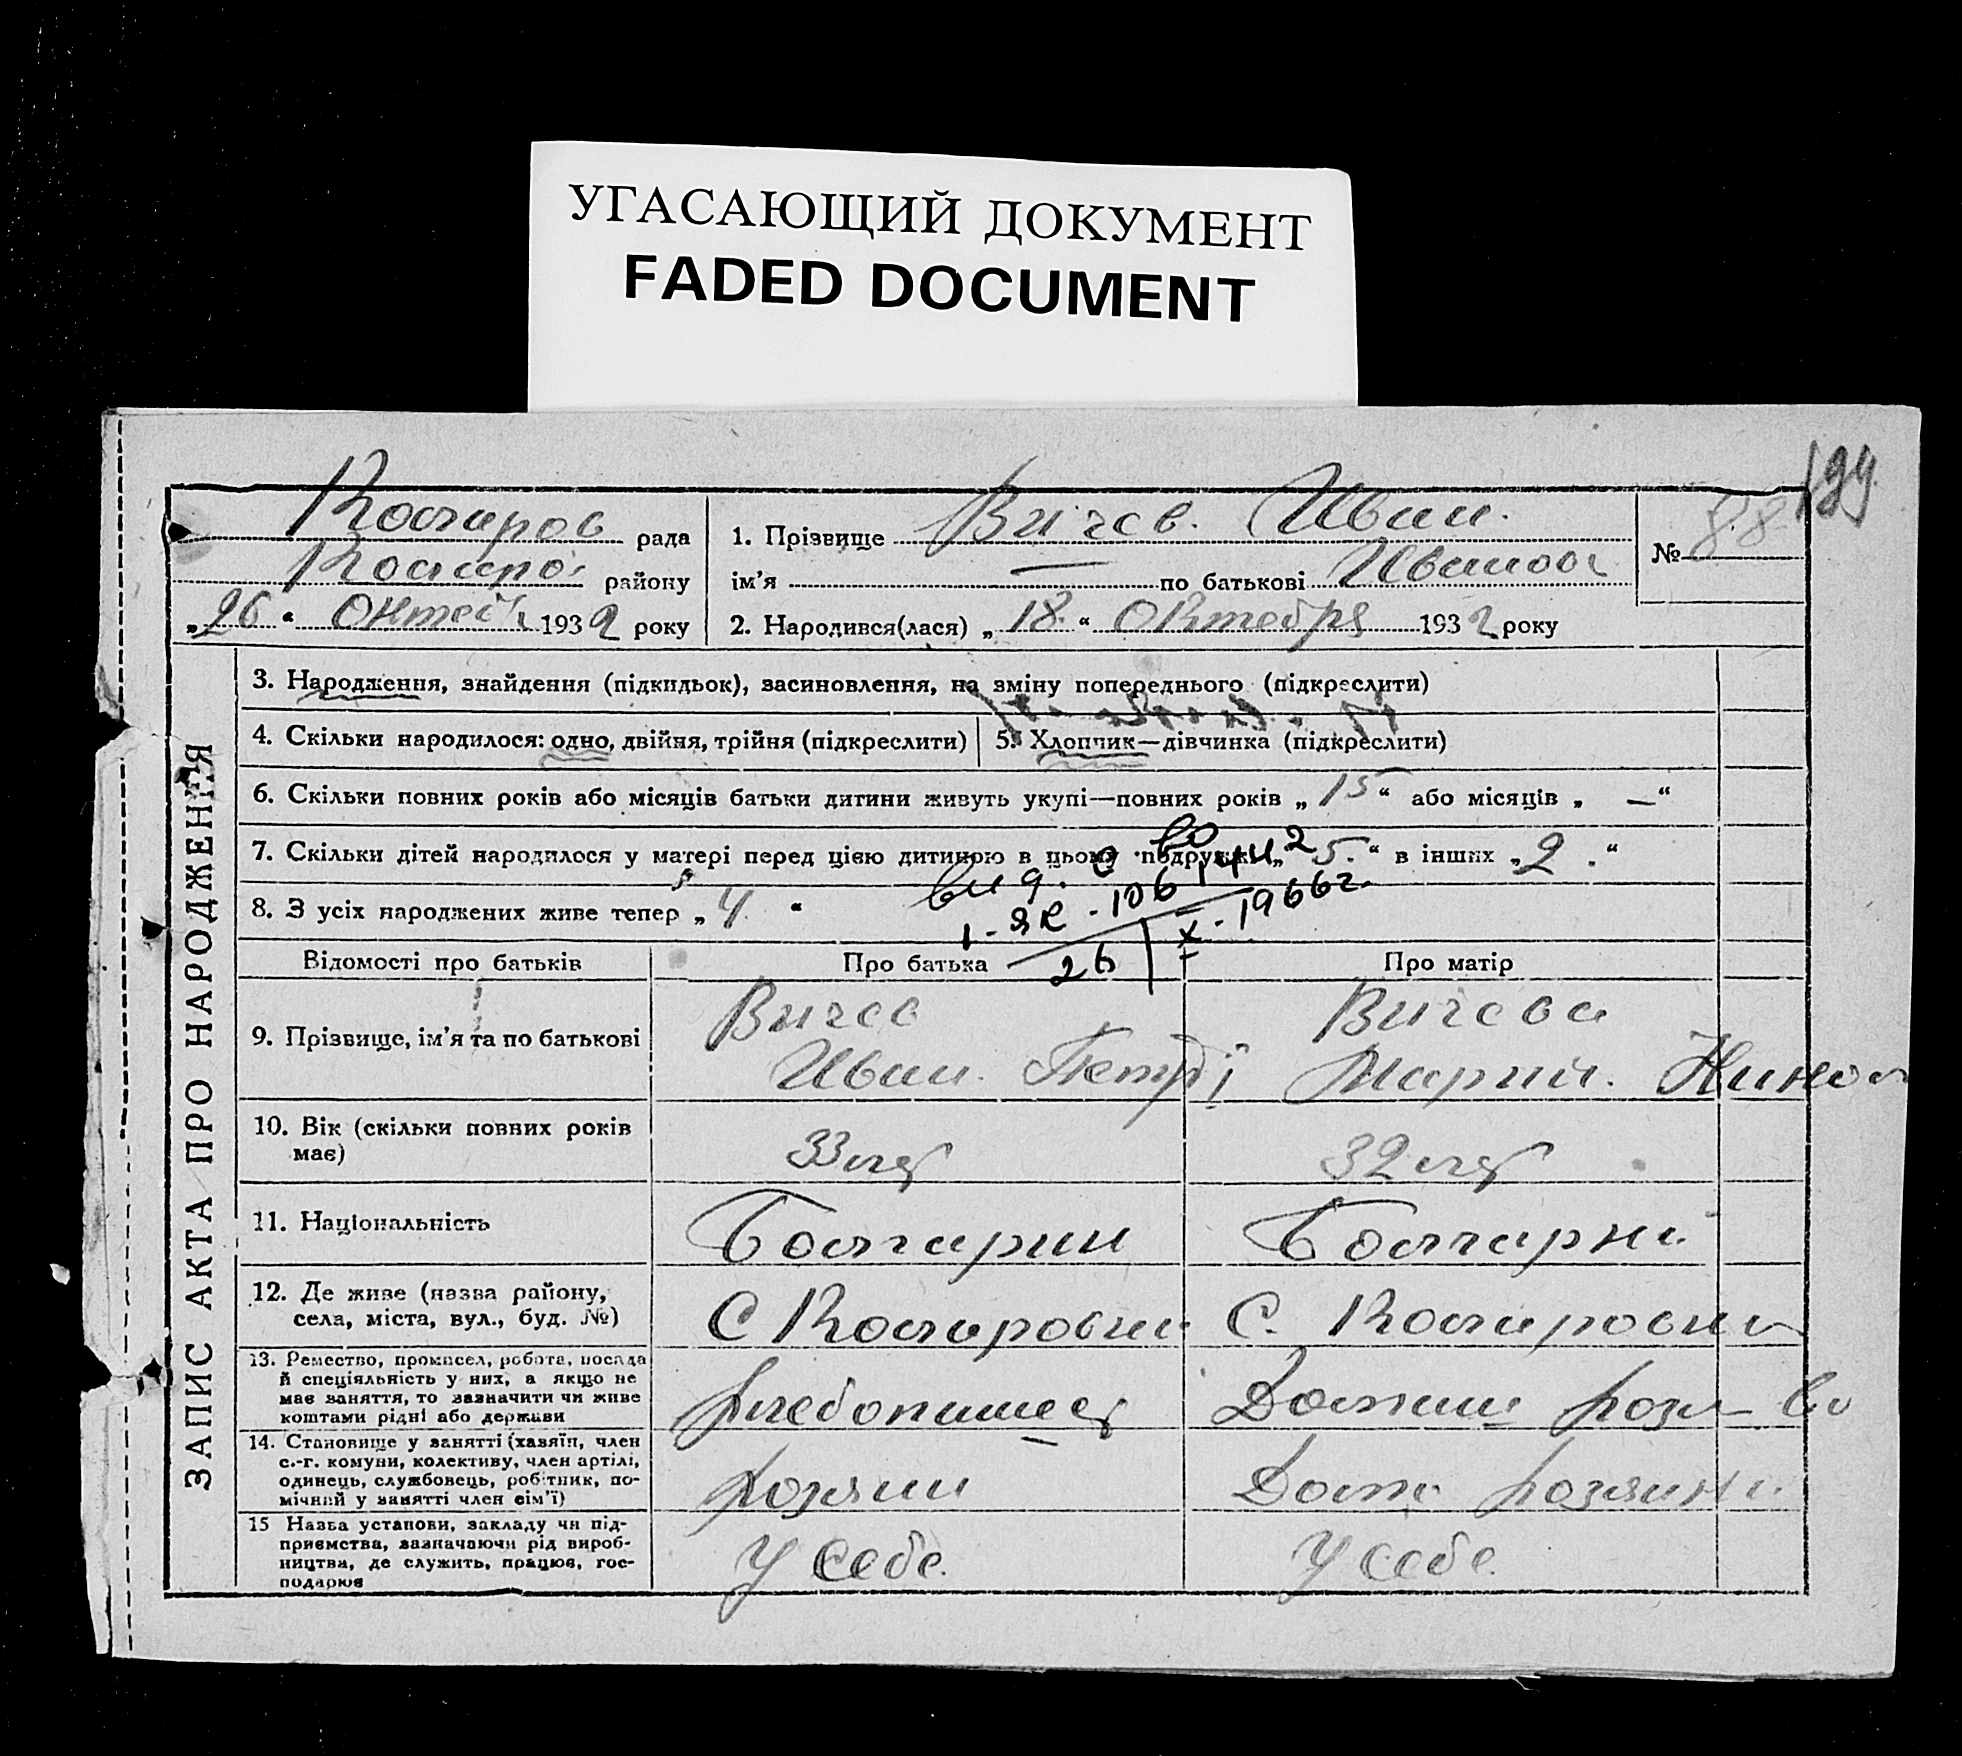 УГАСАЮЩИЙ ДОКУМЕНТ
FADED DOCUMENT
199
рада
району
„26“ 1932 року
1. Прізвище Вичев. Иван.
ім'я — по батькові Иванов
№ 88
2. Народився(лася) „18.“ Октебря 1932 року
ЗАПИС АКТА ПРО НАРОДЖЕННЯ
3. Народження, знайдення (підкидьок), засиновлення, на зміну попереднього (підкреслити)
4. Скільки народилося: одно, двійня, трійня (підкреслити)
5. Хлопчик—дівчинка (підкреслити)
6. Скільки повних років або місяців батьки дитини живуть укупі—повних років „15“ або місяців „—“
7. Скільки дітей народилося у матері перед цією дитиною в цьому подружжі „5.“ в інших „2.“
8. З усіх народжених живе тепер „4.“
26 X - 1966г.
Відомості про батьків
Про батька
Про матір
9. Прізвище, ім'я та по батькові
Вичев
Иван.
Вичева
Мария.
10. Вік (скільки повних років
має)
33
32
11. Національність
Болгарин
Болгарк
12. Де живе (назва району,
села, міста, вул., буд. №)
С
С.
13. Ремество, промисел, робота, посада
й спеціяльність у них, а якщо не
має заняття, то зазначити чи живе
коштами рідні або держави
Хлебопашец
14. Становище у занятті (хазяїн, член
с.-г. комуни, колективу, член артілі,
одинець, службовець, робітник, по-
мічний у занятті член сім'ї)
Хозяин
15 Назва установи, закладу чи під-
приємства, зазначаючи рід вироб-
ництва, де служить, працює, гос-
подарює
У себе.
У себе.